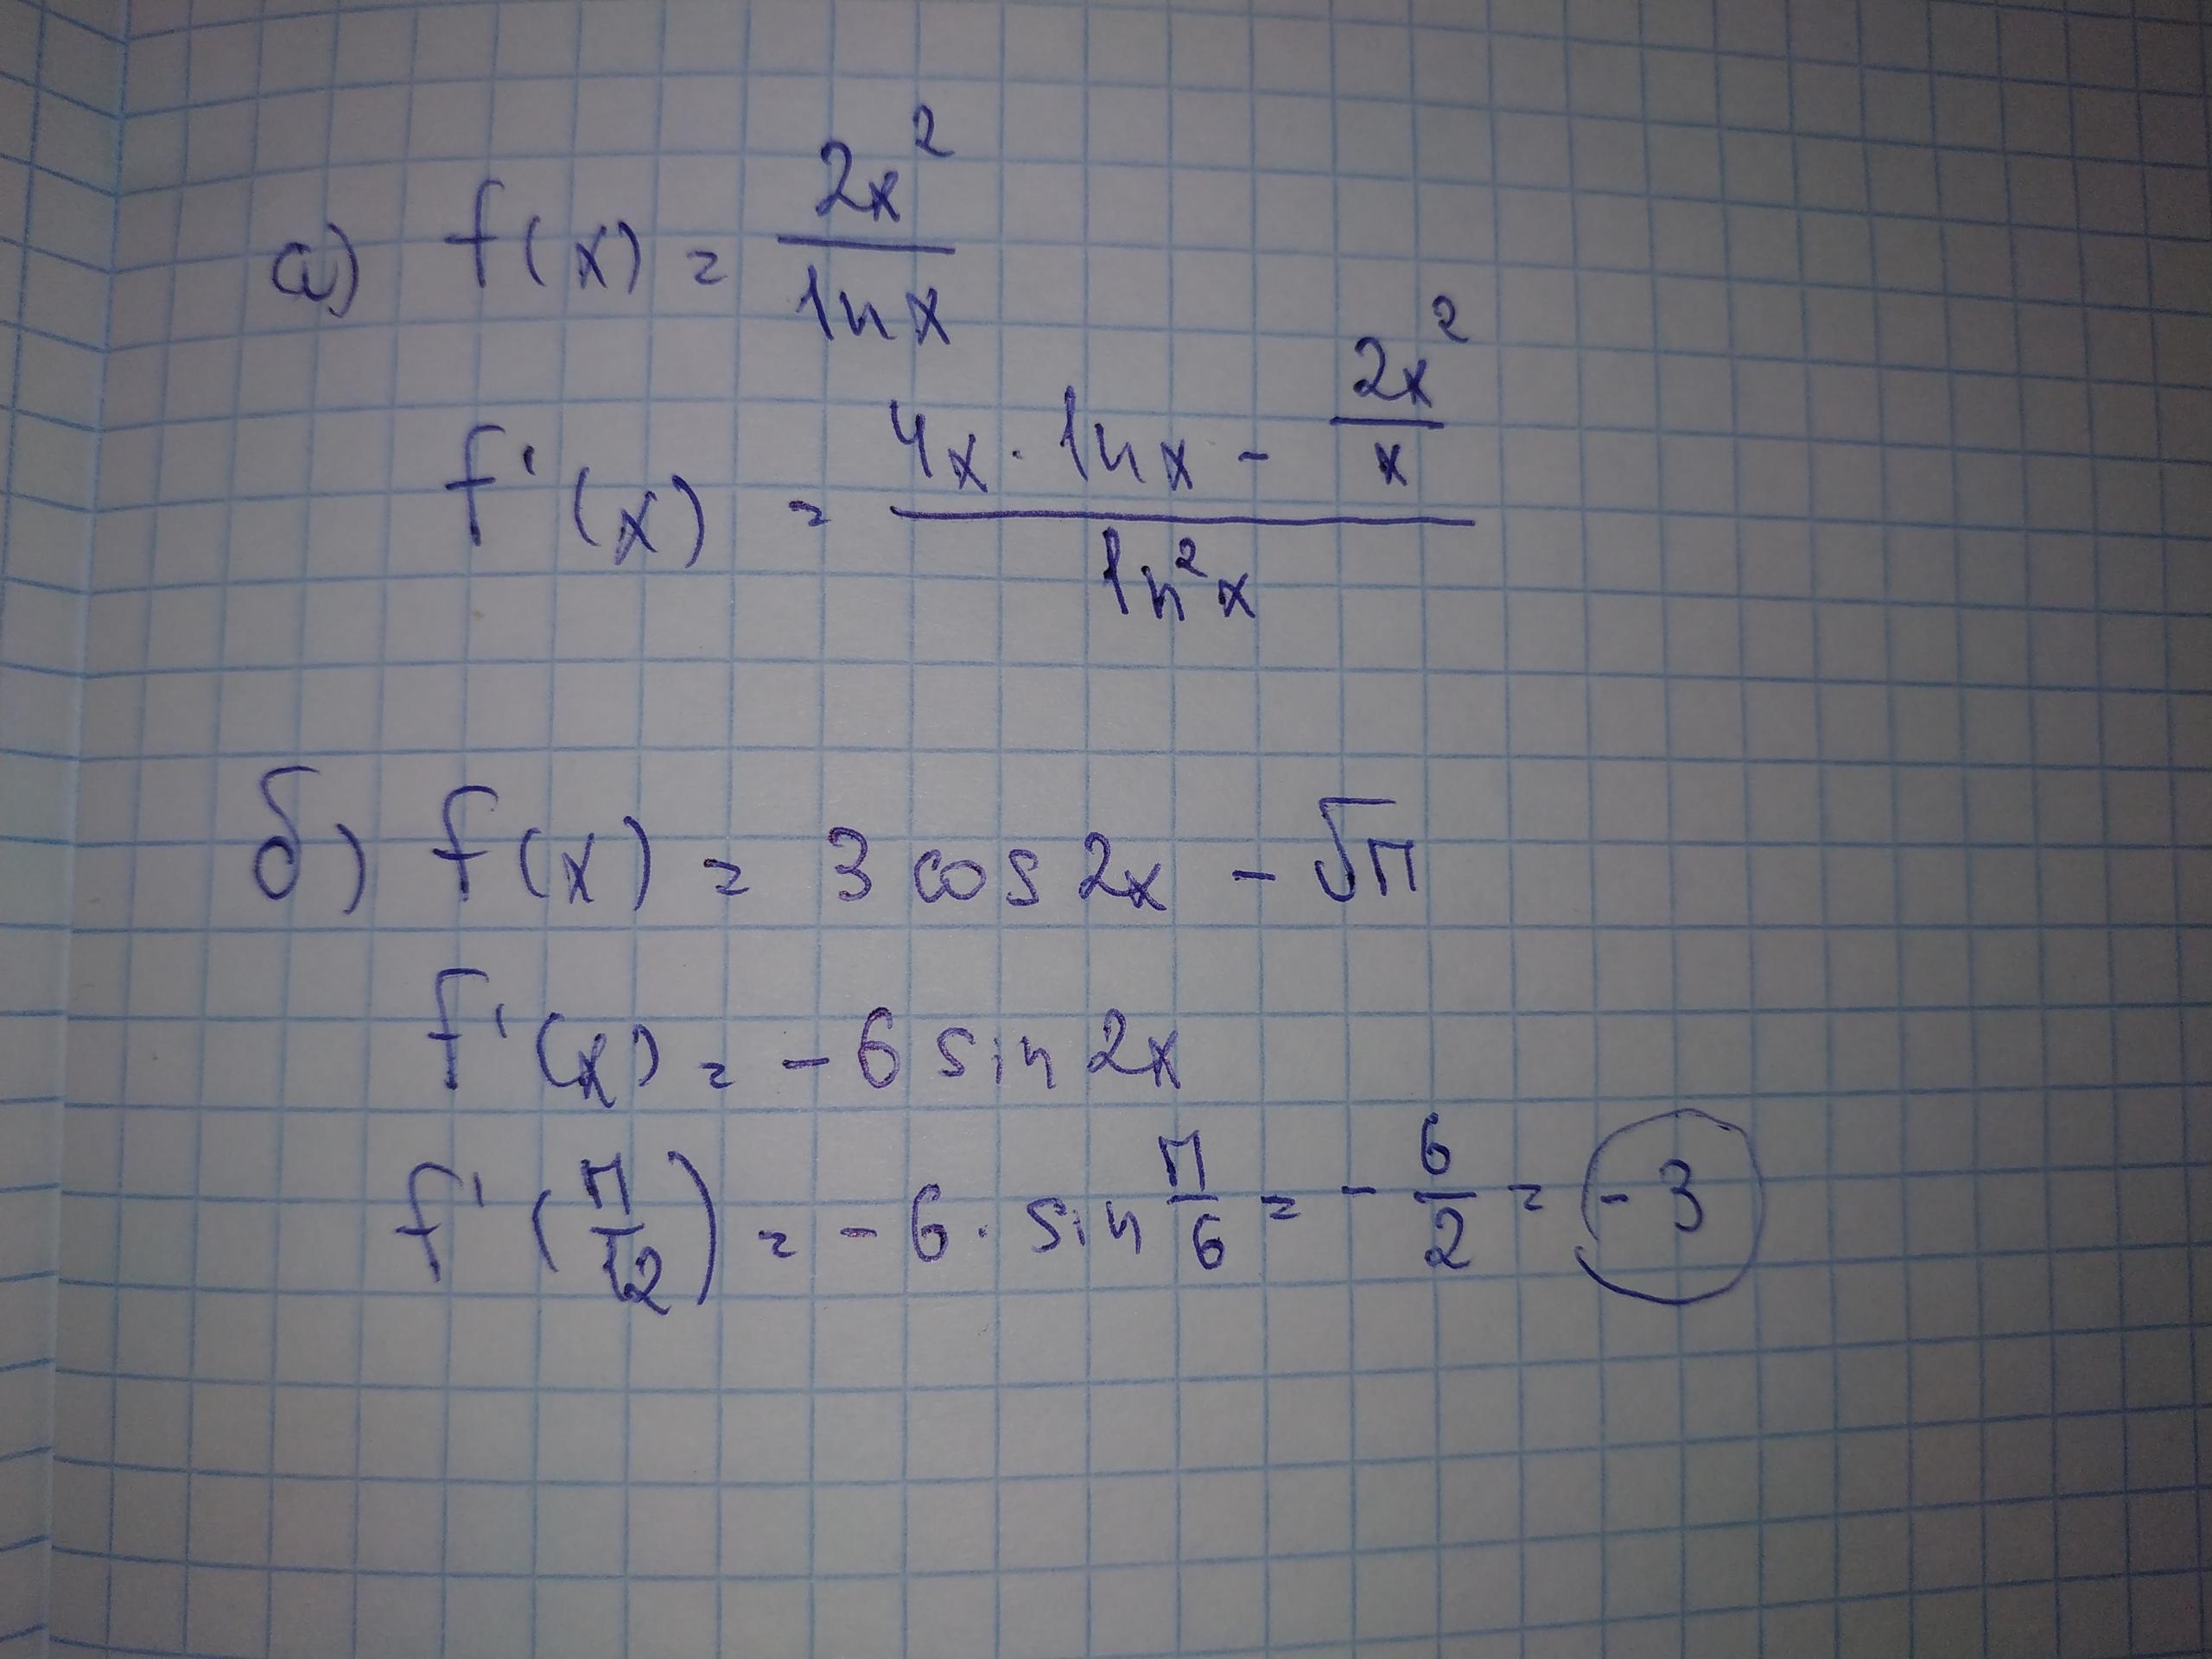 а) f(x) = 2x² / ln x
f'(x) = (4x · ln x - 2x²/x) / ln²x
б) f(x) = 3 cos 2x - √π
f'(x) = - 6 sin 2x
f'(π/12) = - 6 · sin π/6 = - 6/2 = - 3